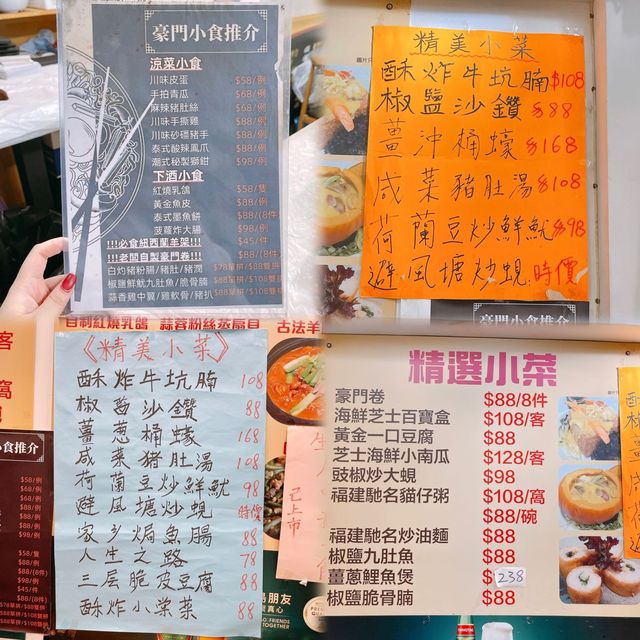 豪門小食推介
涼菜小食
川味皮蛋 $58/例
手拍青瓜 $68/例
麻辣豬肚絲 $68/例
川味手撕雞 $88/例
川味砂礓豬手 $88/例
泰式酸辣鳳爪 $88/例
潮式秘製獅鉗 $98/例
下酒小食
紅燒乳鴿 $58/隻
黃金魚皮 $88/例
泰式墨魚餅 $88/(8件)
菠蘿炸大腸 $98/例
!!!必食紐西蘭羊架!!! $45/件
!!!老闆自製豪門卷!!! $88/(8件)
白灼豬粉腸/豬肚/豬潤 $78單拼/$88雙拼
椒鹽鮮魷九肚魚/脆骨腩 $88單拼/$108雙拼
蒜香雞中翼/雞軟骨/豬扒 $88單拼/$108雙拼
精美小菜
酥炸牛坑腩 $108
椒鹽沙鑽 $88
薑沖桶蠔 $168
咸菜豬肚湯 $108
荷蘭豆炒鮮魷 $98
避風塘炒蜆 時價
豪門小食推介
自制紅燒乳鴿 蒜蓉粉絲蒸扇貝 古法羊
《精美小菜》
酥炸牛坑腩 108
椒鹽沙鑽 88
薑蔥桶蠔 168
咸菜豬肚湯 108
荷蘭豆炒鮮魷 98
避風塘炒蜆 時價
家乡焗魚腸 88
人生之路 78
三层脆皮豆腐 88
酥炸小棠菜 88
客
窩
小食推介
$58/例
$68/例
$68/例
$88/例
$88/例
$88/例
$98/例
$58/隻
$88/例
$88/(8件)
$98/例
$45/件
$88/(8件)
已上市
朋友
真心
精選小菜
豪門卷 $88/8件
海鮮芝士百寶盒 $108/客
黃金一口豆腐 $88
芝士海鮮小南瓜 $128/客
豉椒炒大蜆 $98
福建馳名貓仔粥 $108/窩
$88/碗
福建馳名炒油麵 $88
椒鹽九肚魚 $88
薑蔥鯉魚煲 $238
椒鹽脆骨腩 $88